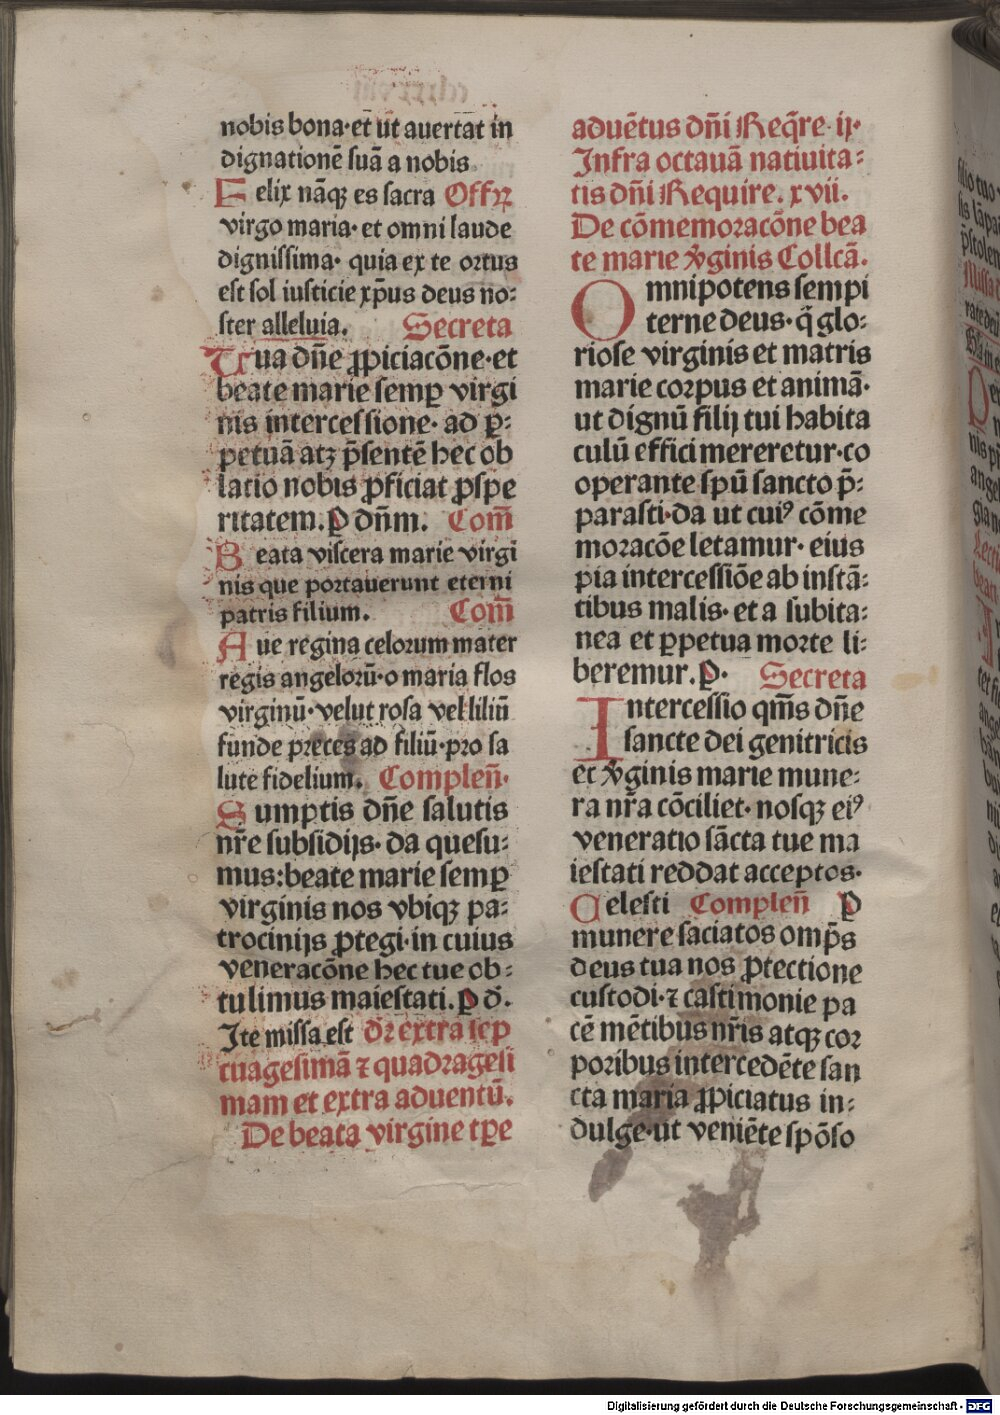 nobis bona·et ut auertat in
dignationē ſuā a nobis
Felix nāqꝫ es ſacra Offꝝ
virgo maria· et omni laude
digniſſima· quia ex te ortus
eſt ſol iuſticie xp̄us deus no⸗
ſter alleluia. Secreta
Tua dn̄e ꝓpiciacōne·et
beate marie ſemꝑ virgi
nis interceſſione· ad ꝑ⸗
petuā atꝫ p̄ſentē hec ob
latio nobis ꝓficiat ꝓſpe
ritatem.Ꝑ dn̄m. Com̄
Beata viſcera marie virgi
nis que portauerunt eterni
patris filium. Com̄
Aue regina celorum mater
regis angelorū·o maria flos
virginū·velut roſa vel liliū
funde preces ad filiū·pro ſa
lute fidelium. Complen̄·
Sumptis dn̄e ſalutis
nr̄e ſubſidijs· da queſu⸗
mus:beate marie ſemꝑ
virginis nos vbiqꝫ pa⸗
trocinijs ꝓtegi·in cuius
veneracōne hec tue ob⸗
tulimus maieſtati.Ꝑ d̄.
Ite miſſa eſt dr̄ extra ſep
tuagesimā ⁊ quadrageſi
mam et extra aduentū.
De beata virgine tꝑe
aduētus dn̄i Req̄re ij·
Infra octauā natiuita⸗
tis dn̄i Require. xvii.
De cōmemoracōne bea
te marie v̄ginis Collcā.
Omnipotens ſempi
terne deus· q̄ glo⸗
rioſe virginis et matris
marie corpus et animā·
ut dignū filij tui habita
culū effici mereretur·co
operante ſpū ſancto p̄⸗
paraſti·da ut cuiꝰ cōme
moracōe letamur· eius
pia interceſſiōe ab inſtā⸗
tibus malis· et a ſubita⸗
nea et ꝑpetua morte li⸗
beremur.Ꝑ· Secreta
Interceſſio qm̄s dn̄e
ſancte dei genitricis
et v̄ginis marie mune⸗
ra nr̄a cōciliet· noſqꝫ eiꝰ
veneratio ſācta tue ma
ieſtati reddat acceptos·
Celeſti Complen̄ Ꝑ
munere ſaciatos omp̄s
deus tua nos ꝓtectione
cuſtodi·⁊ caſtimonie pa
cē mētibus nr̄is atqꝫ cor
poribus intercedēte ſan
cta maria ꝓpiciatus in⸗
dulge·ut veniēte ſpōſo
Digitalisierung gefördert durch die Deutsche Forschungsgemeinschaft · DFG